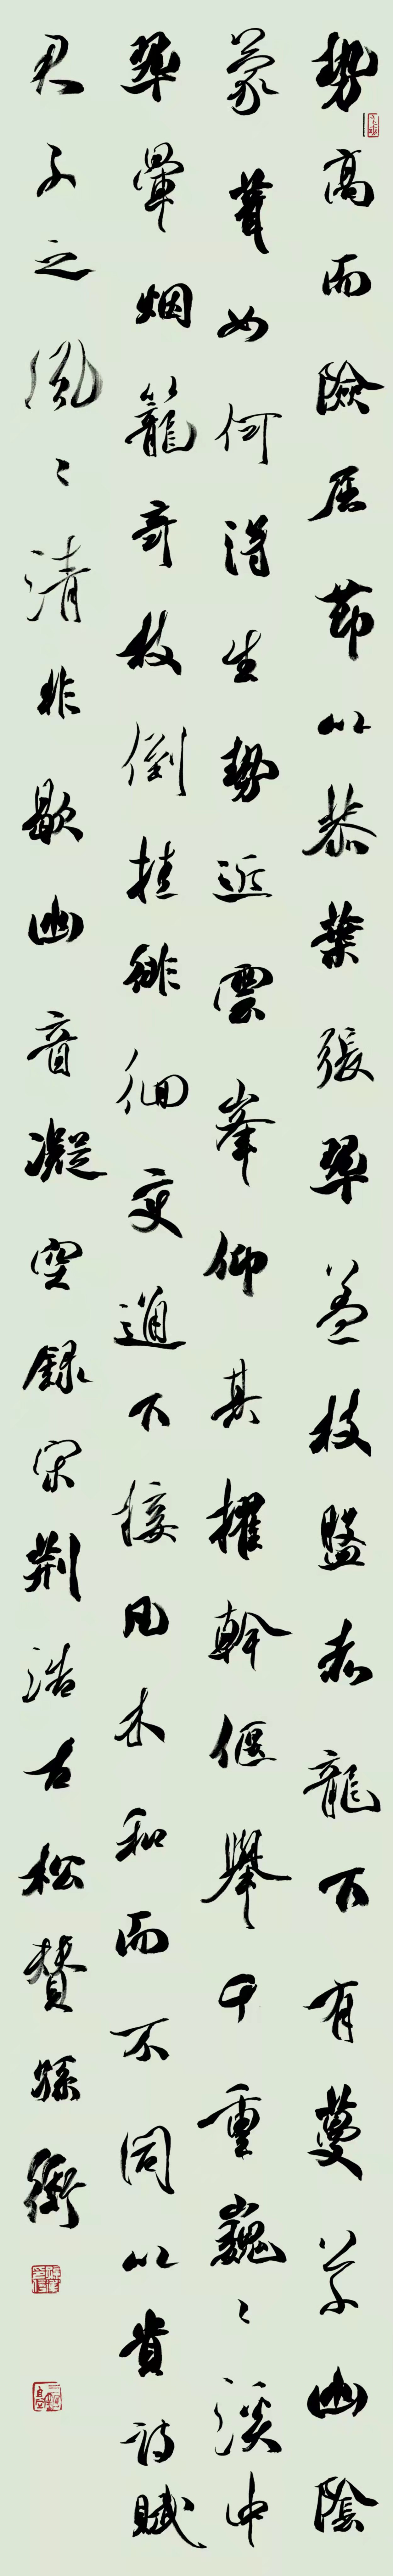 勢高而險屈節以恭葉張翠蓋枝盤赤龍下有蔓草幽陰
蒙茸如何得生勢近雲峯仰其擢幹偃舉千重巍々溪中
翠暈烟籠奇枝倒挂徘徊变通下接凡木和而不同以貴詩賦
君子之風々清非歇幽音凝空錄宋荆浩古松贊孫